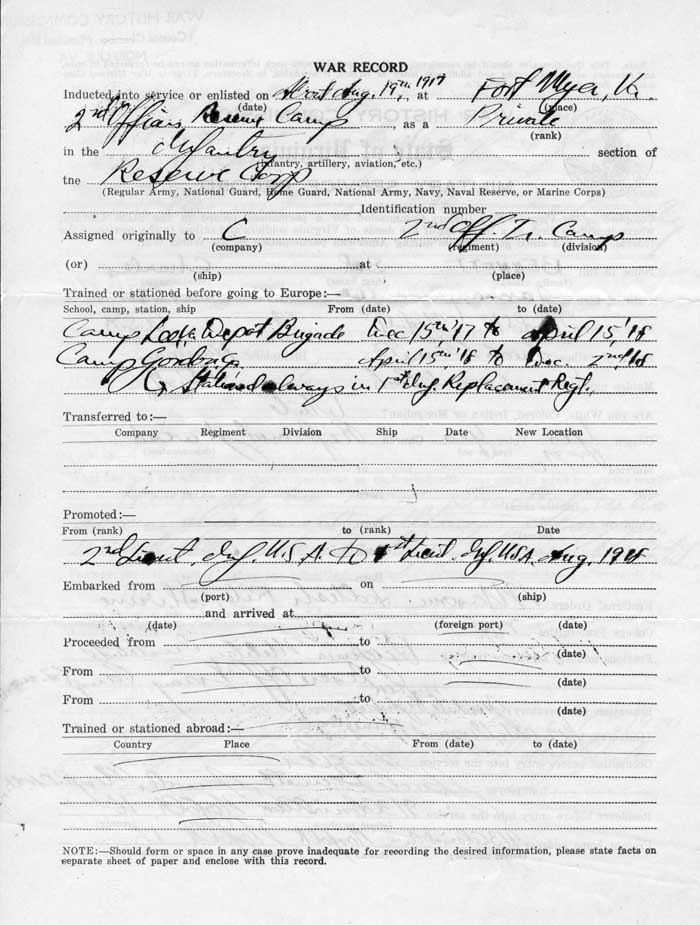 WAR RECORD
Inducted into service or enlisted on About Aug. 19th, 1917 at Fort Myer, Va.
(date) (place)
2nd Officers Reserve Camp, as a Private
(rank)
in the Infantry section of
(infantry, artillery, aviation, etc.)
the Reserve Corp
(Regular Army, National Guard, Home Guard, National Army, Navy, Naval Reserve, or Marine Corps)
Identification number
Assigned originally to C 2nd Off. Tr. Camp
(company) (regiment) (division)
(or) at
(ship) (place)
Trained or stationed before going to Europe:—
School, camp, station, ship From (date) to (date)
Camp Lee, Va Depot Brigade Dec 15th '17 to April 15, '18
Camp Gordon, Ga April 15th '18 to Dec. 2nd, 18
Stationed always in 1st Inf. Replacement Regt.,
Transferred to:—
Company Regiment Division Ship Date New Location
Promoted:—
From (rank) to (rank) Date
2nd Lieut. Inf. U.S.A. to 1st Lieut. Inf. U.S.A. Aug. 1918
Embarked from on
(port) (ship)
and arrived at
(date) (foreign port) (date)
Proceeded from to
(date)
From to
(date)
From to
(date)
Trained or stationed abroad:—
Country Place From (date) to (date)
NOTE:—Should form or space in any case prove inadequate for recording the desired information, please state facts on
separate sheet of paper and enclose with this record.